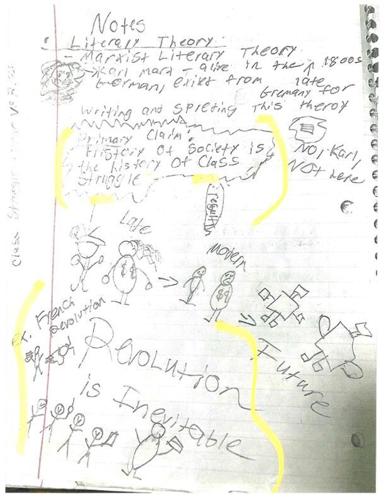 Notes
Literary Theory:
- Marxist Literary Theory
- Karl Marx - alive in the 1800s
German, exiled from late
Germany for
Writing and spreting this theroy
Primary Claim:
History Of Society is
the history Of Class
Struggle
No, Karl,
NOT here
Class Struggle
Late
Modern
Future
Ex. French
Revolution
Revolution
is Inevitable